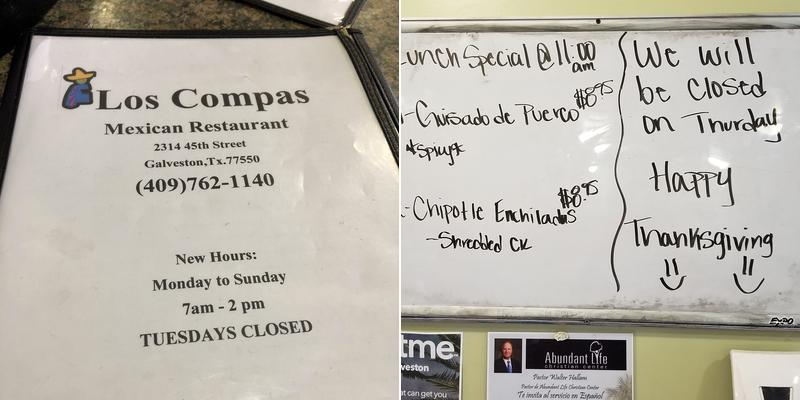 Los Compas
Mexican Restaurant
2314 45th Street
Galveston,Tx.77550
(409)762-1140
New Hours:
Monday to Sunday
7am - 2 pm
TUESDAYS CLOSED
unch Special @ 11:00
am
$8.95
-Guisado de Puerco
-Chipotle Enchiladas
$8.95
-Shredded CK
We will
be Closed
on Thurday
Happy
Thanksgiving
EXPO
tme
veston
at can get you
Abundant Life
christian center
Pastor Walter Hallam
Pastor de Abundant Life Christian Center
Te invita al servicio en Español